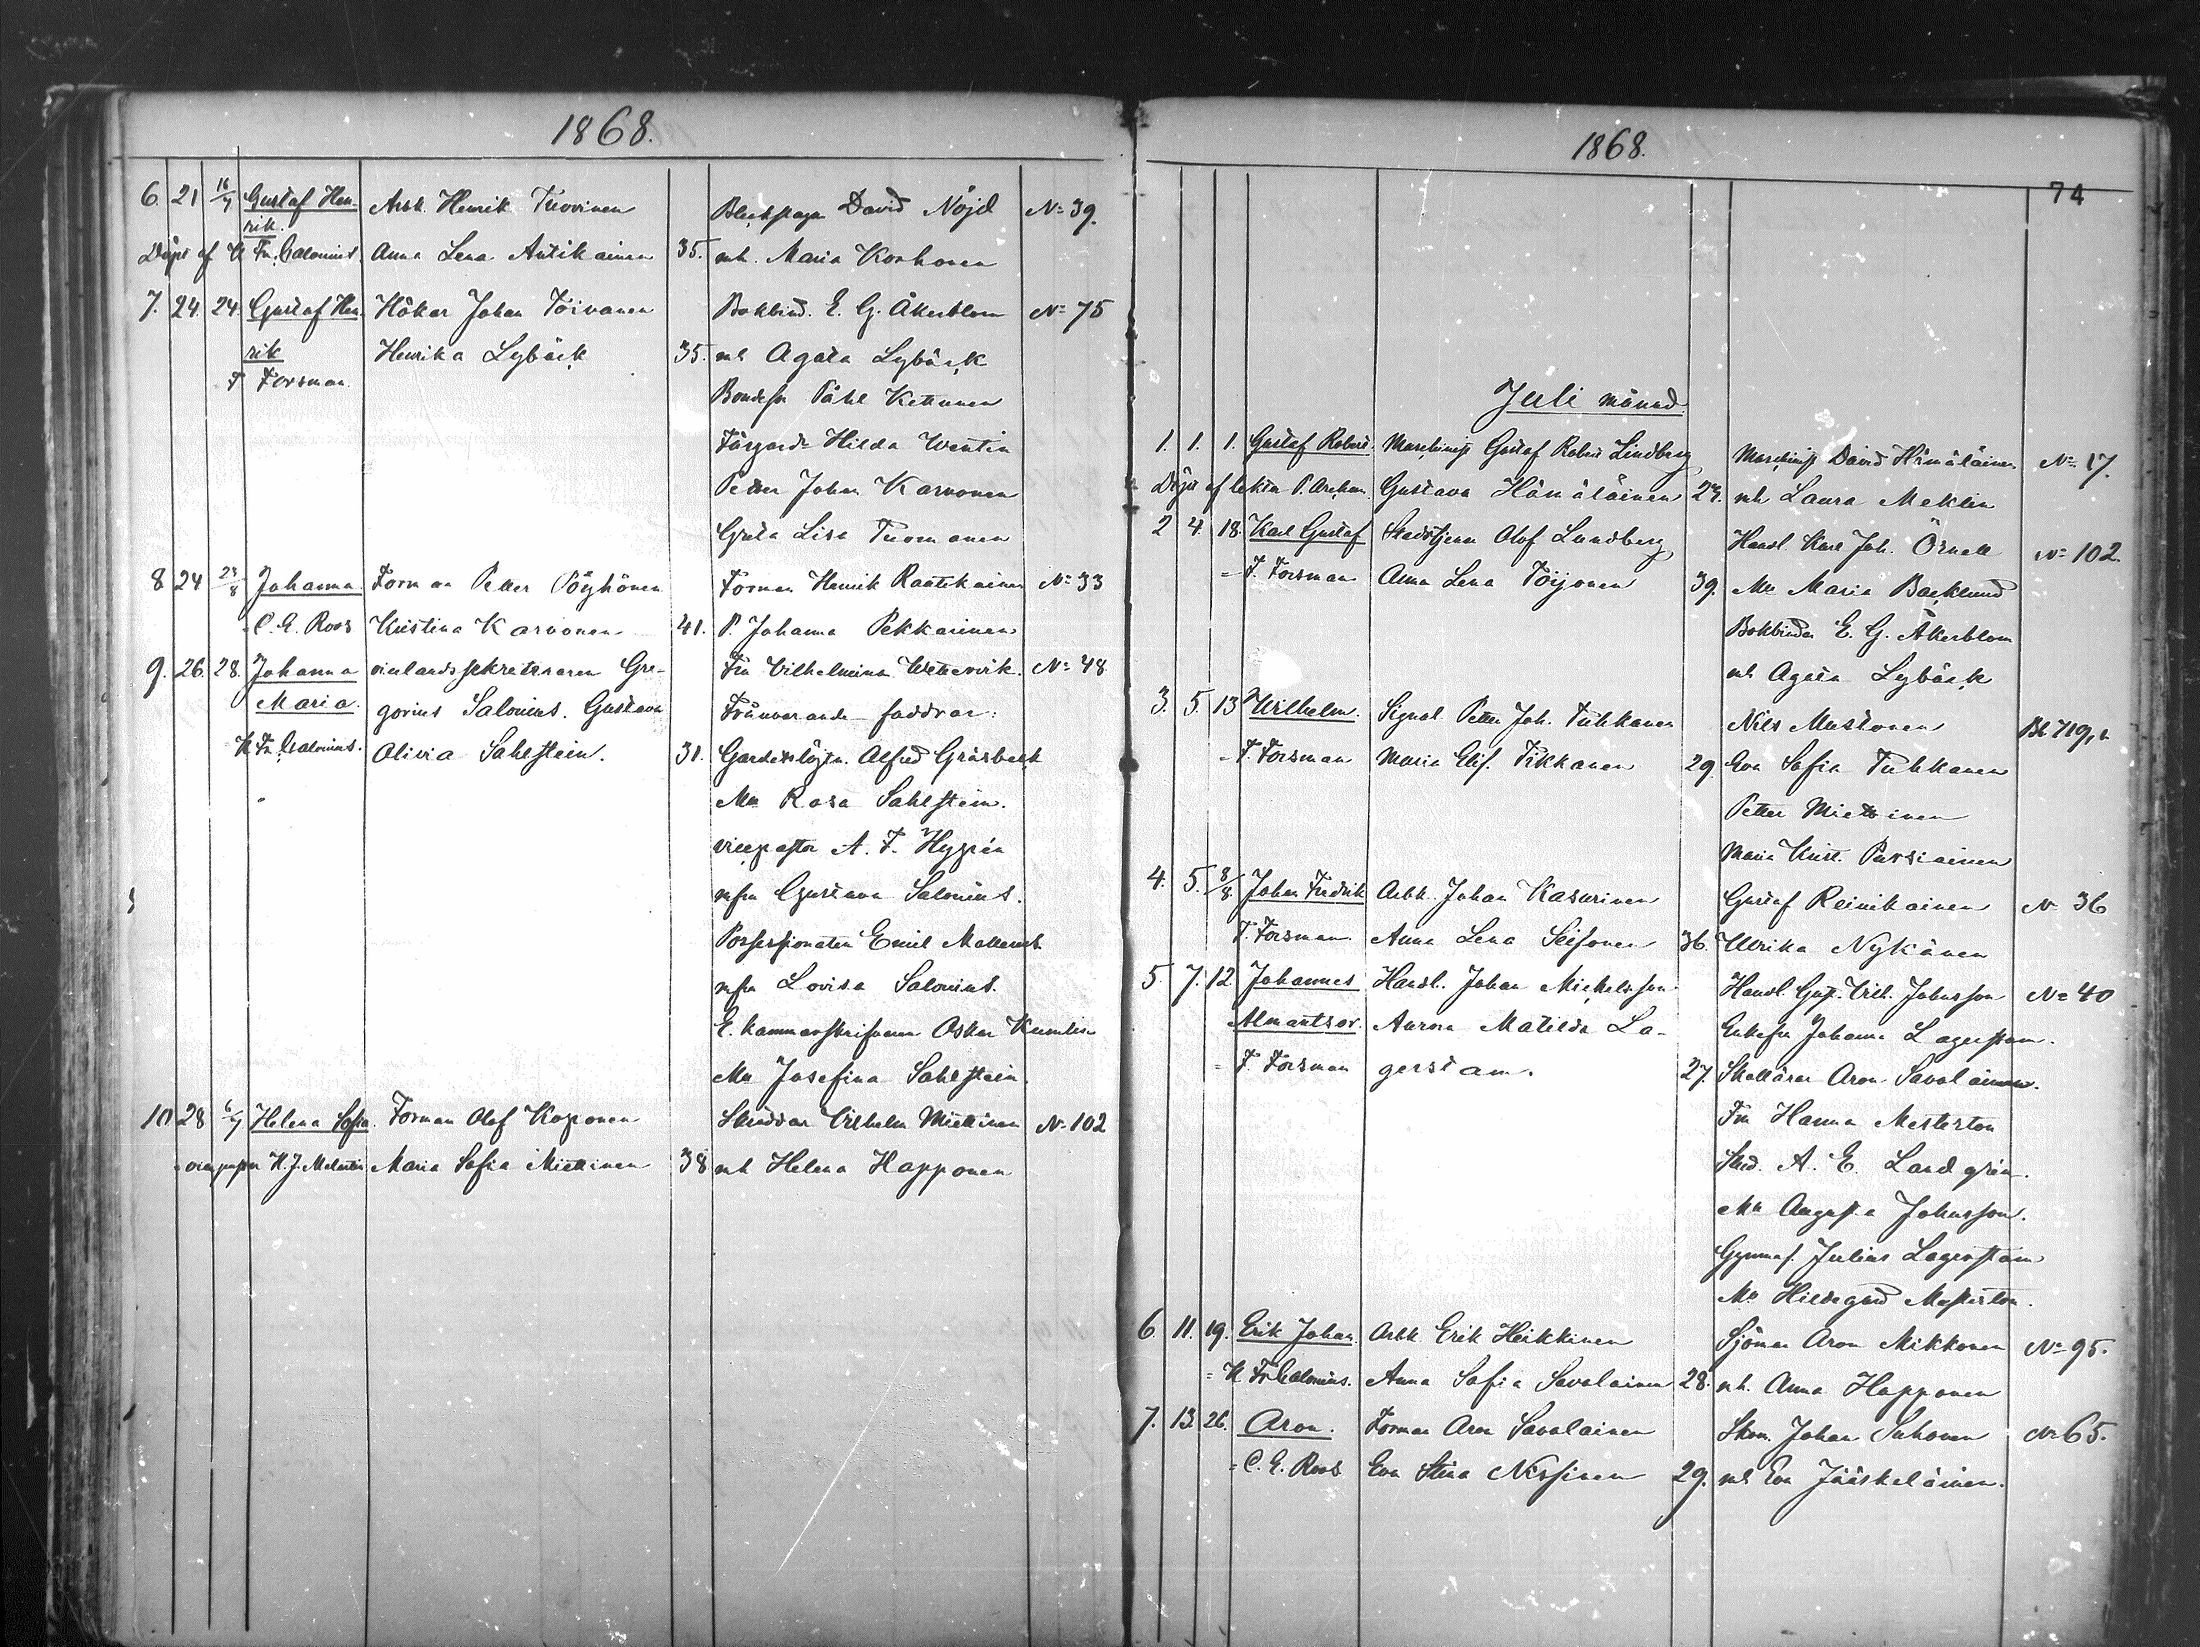 1868.
6 21 16/7 Gustaf Hen- Arb. Henrik Tuovinen David Nöjd No 39.
rik.
Döpt af K Fr. Calonius Anna Lena Antikainen 35. mh. Maria Korhonen
7. 24. 24. Gustaf Hen Hökar Johan Toivanen Bokbind. E. G. Åkerblom No 75
rik Henrika Lybäck 35. mh Agata Lybäck
F Forsman. Bondesn Påhl Kettunen
Hilda Wentin
Petter Johan Karvonen
Greta Lisa Tuomanen
8 24 Johanna Forman Petter Pöyhönen Forman Henrik Raatikainen No 33
C. E. Roos Kristina Karvonen 41. P. Johanna Pekkarinen
9. 26. 28. Johanna vicelandssekreteraren Gre- Fru Vilhelmina No 48
Maria. gorius Salonius. Gustava Frånvarande faddrar:
K Fr. Calonius. Olivia Sahlstein. 31. Alfred Gräsbeck
Mll Rosa Sahlstein.
vicepastor A. F. Hygrén
mfru Gustava Salonius.
Possessionaten Emil
mfru Lovisa Salonius.
E. kammarskrifvaren Oskar
Mll Josefina Sahlstein.
10 28 6/7 Helena Sofia. Forman Olof Koponen Skräddar Vilhelm Miettinen No 102
vicepastor H. J. Maria Sofia Miettinen 38 mh Helena Happonen
1868.
74
Juli månad.
1. 1. 1. Gustaf Robert. Maschinist Gustaf Robert Lindberg Maschinist David Hämäläinen No 17.
Döpt af Gustava Hämäläinen 23. mh Laura Meklin
2 4. 18. Karl Gustaf Olof Lundberg Handl. Karl Joh. Örnell No 102.
= F. Forsman Anna Lena Törjonen 39. Mll Maria Backlund
Bokbindar E. G. Åkerblom
mh Agata Lybäck
3. 5. 13 Wilhelm. Signal. Petter Joh. Tuhkanen Nils Mustonen
= F. Forsman Maria Elis. Pikkanen 29 Eva Sofia Tuhkanen
Petter Miettinen
Maria Krist. Parviainen
4. 5. 8/8 Johan Fredrik Arbk. Johan Kasurinen Gustaf Reinikainen No 36
F. Forsman Anna Lena 36. Ulrika Nykänen
5. 7. 12. Johannes Handl. Johan Michelsson Handl. Gust. Vilh. Johnsson No 40
Almantsor. Aurora Matilda La- Enkefru Johanna Lagerstam.
= F. Forsman gerstam. 27. Aron Savolainen.
Fru Hanna Mesterton
Stud. A. E. Landgrén.
Mll Augusta Johnsson.
Gymnas. Julius Lagerstam
Mll Hildegard Mesterton.
6. 11. 19. Erik Johan Arbk Erik Heikkinen Sjöman Aron Mikkonen No 95.
= K Fr Calonius. Anna Sofia Savolainen 28. mh. Anna Happonen
7. 13. 26. Aron. Forman Aron Savolainen Johan Suhonen No 65.
= C. E. Roos Eva Stina Nissinen 29. mh Eva Jääskeläinen.